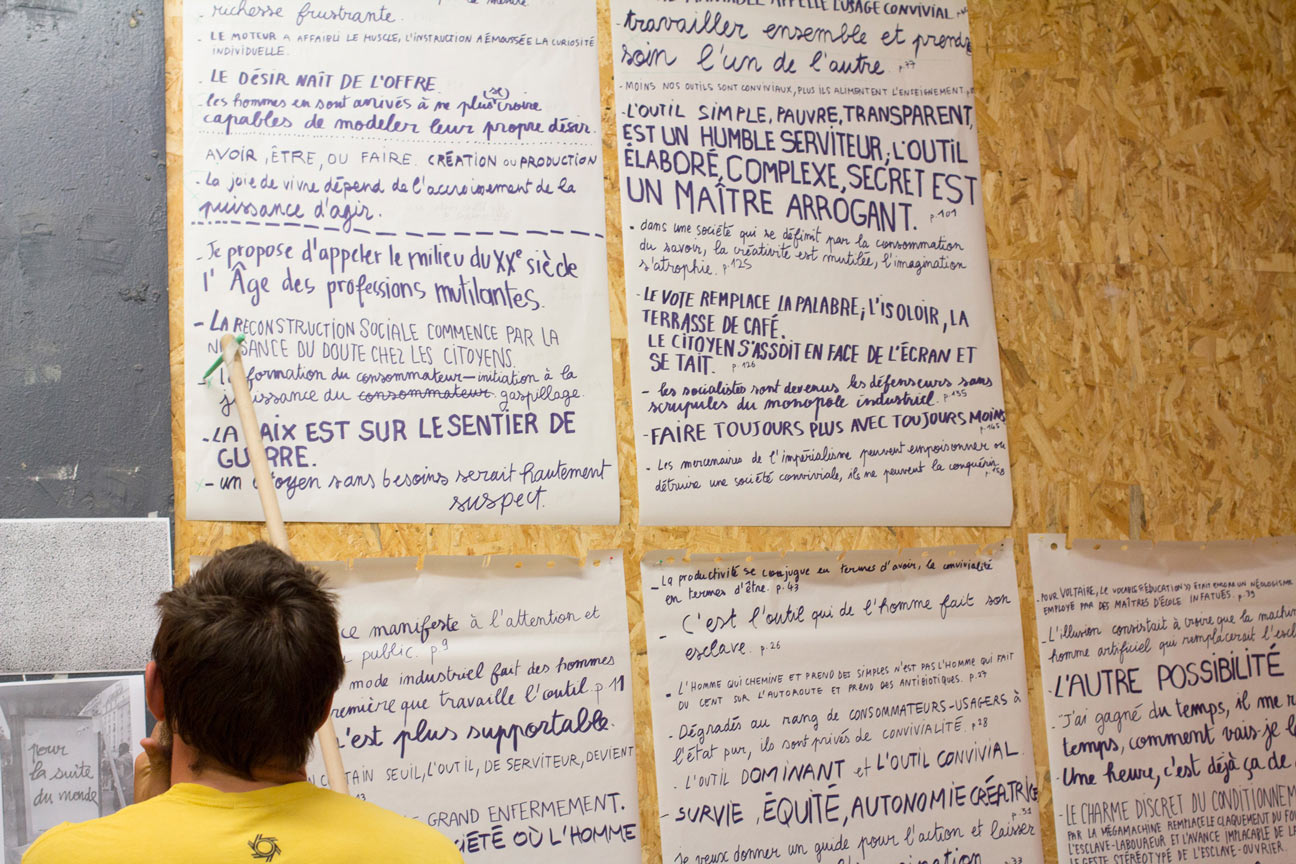 richesse frustrante.
- LE MOTEUR A AFFAIBLI LE MUSCLE, L'INSTRUCTION A ÉMOUSSÉE LA CURIOSITÉ
INDIVIDUELLE.
- LE DÉSIR NAÎT DE L'OFFRE
- les hommes en sont arrivés à ne plus (se) croire
capables de modeler leur propre désir.
AVOIR, ÊTRE, OU FAIRE. CRÉATION OU PRODUCTION
- La joie de vivre dépend de l'accroissement de la
puissance d'agir.
- Je propose d'appeler le milieu du XXe siècle
l' Âge des professions mutilantes.
- LA RECONSTRUCTION SOCIALE COMMENCE PAR LA
NAISSANCE DU DOUTE CHEZ LES CITOYENS.
- la formation du consommateur - initiation à la
jouissance du consommateur gaspillage.
- LA PAIX EST SUR LE SENTIER DE
GUERRE.
- un citoyen sans besoins serait hautement
suspect.
APPELLE L'USAGE CONVIVIAL
travailler ensemble et prendre
soin l'un de l'autre. p.77
- MOINS NOS OUTILS SONT CONVIVIAUX, PLUS ILS ALIMENTENT L'ENSEIGNEMENT
L'OUTIL SIMPLE, PAUVRE, TRANSPARENT,
EST UN HUMBLE SERVITEUR, L'OUTIL
ÉLABORÉ, COMPLEXE, SECRET EST
UN MAÎTRE ARROGANT. p.101
- dans une société qui se définit par la consommation
du savoir, la créativité est mutilée, l'imagination
s'atrophie. p.125
- LE VOTE REMPLACE LA PALABRE; L'ISOLOIR, LA
TERRASSE DE CAFÉ.
LE CITOYEN S'ASSOIT EN FACE DE L'ÉCRAN ET
SE TAIT. p.126
- les socialistes sont devenus les défenseurs sans
scrupules du monopole industriel. p.135
- FAIRE TOUJOURS PLUS AVEC TOUJOURS MOINS
p.145
- Les mercenaires de l'impérialisme peuvent empoisonner ou
détruire une société conviviale, ils ne peuvent la conquérir. p.158
pour
la suite
du monde
ce manifeste à l'attention et
public. p9
mode industriel fait des hommes
première que travaille l'outil. p 11
n'est plus supportable.
CERTAIN SEUIL, L'OUTIL, DE SERVITEUR, DEVIENT
13
GRAND ENFERMEMENT.
SOCIÉTÉ OÙ L'HOMME
- La productivité se conjugue en termes d'avoir, la convivialité
en termes d'être. p.43
- C'est l'outil qui de l'homme fait son
esclave. p.26
- L'HOMME QUI CHEMINE ET PREND DES SIMPLES N'EST PAS L'HOMME QUI FAIT
DU CENT SUR L'AUTOROUTE ET PREND DES ANTIBIOTIQUES. p.27
- Dégradés au rang de CONSOMMATEURS-USAGERS à
l'état pur, ils sont privés de CONVIVIALITÉ. p28
- L'OUTIL DOMINANT et L'OUTIL CONVIVIAL
- SURVIE, ÉQUITÉ, AUTONOMIE CRÉATRICE
p.31
je veux donner un guide pour l'action et laisser
p.33
- POUR VOLTAIRE, LE VOCABLE "ÉDUCATION" ÉTAIT ENCORE UN NÉOLOGISME
EMPLOYÉ PAR DES MAÎTRES D'ÉCOLE INFATUÉS. p.39
- L'illusion consistait à croire que la machine
homme artificiel qui remplacerait
- L'AUTRE POSSIBILITÉ
- J'ai gagné du temps, il me
temps, comment vais-je
Une heure, c'est déjà ça de
- LE CHARME DISCRET DU CONDITIONNEM
PAR LA MÉGAMACHINE REMPLACE LE CLAQUEMENT DU
L'ESCLAVE-LABOUREUR ET L'AVANCE IMPLACABLE DE
LE GESTE STÉRÉOTYPÉ DE L'ESCLAVE-OUVRIER.